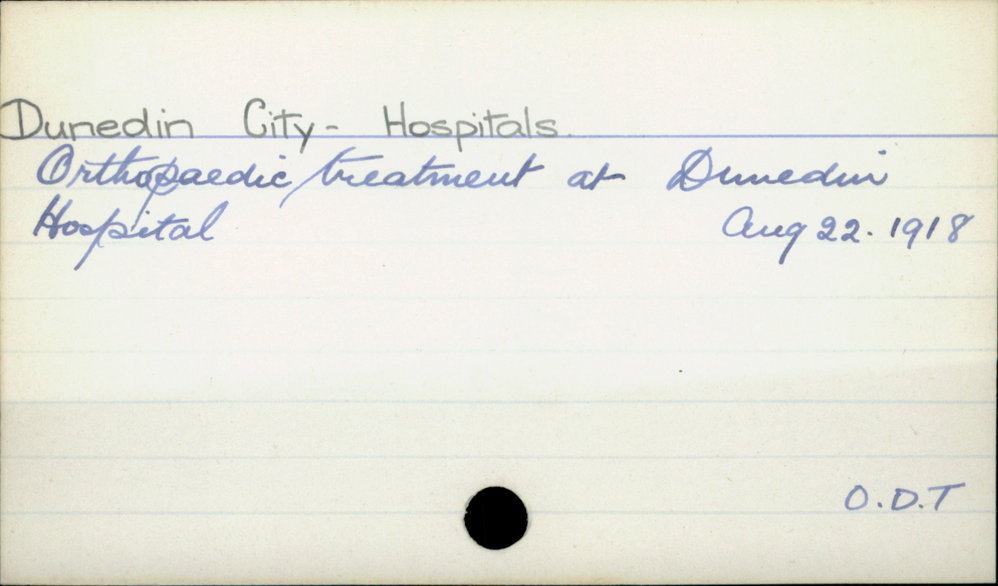 Dunedin City - Hospitals.
Orthopaedic treatment at Dunedin
Hospital Aug 22. 1918
O.D.T